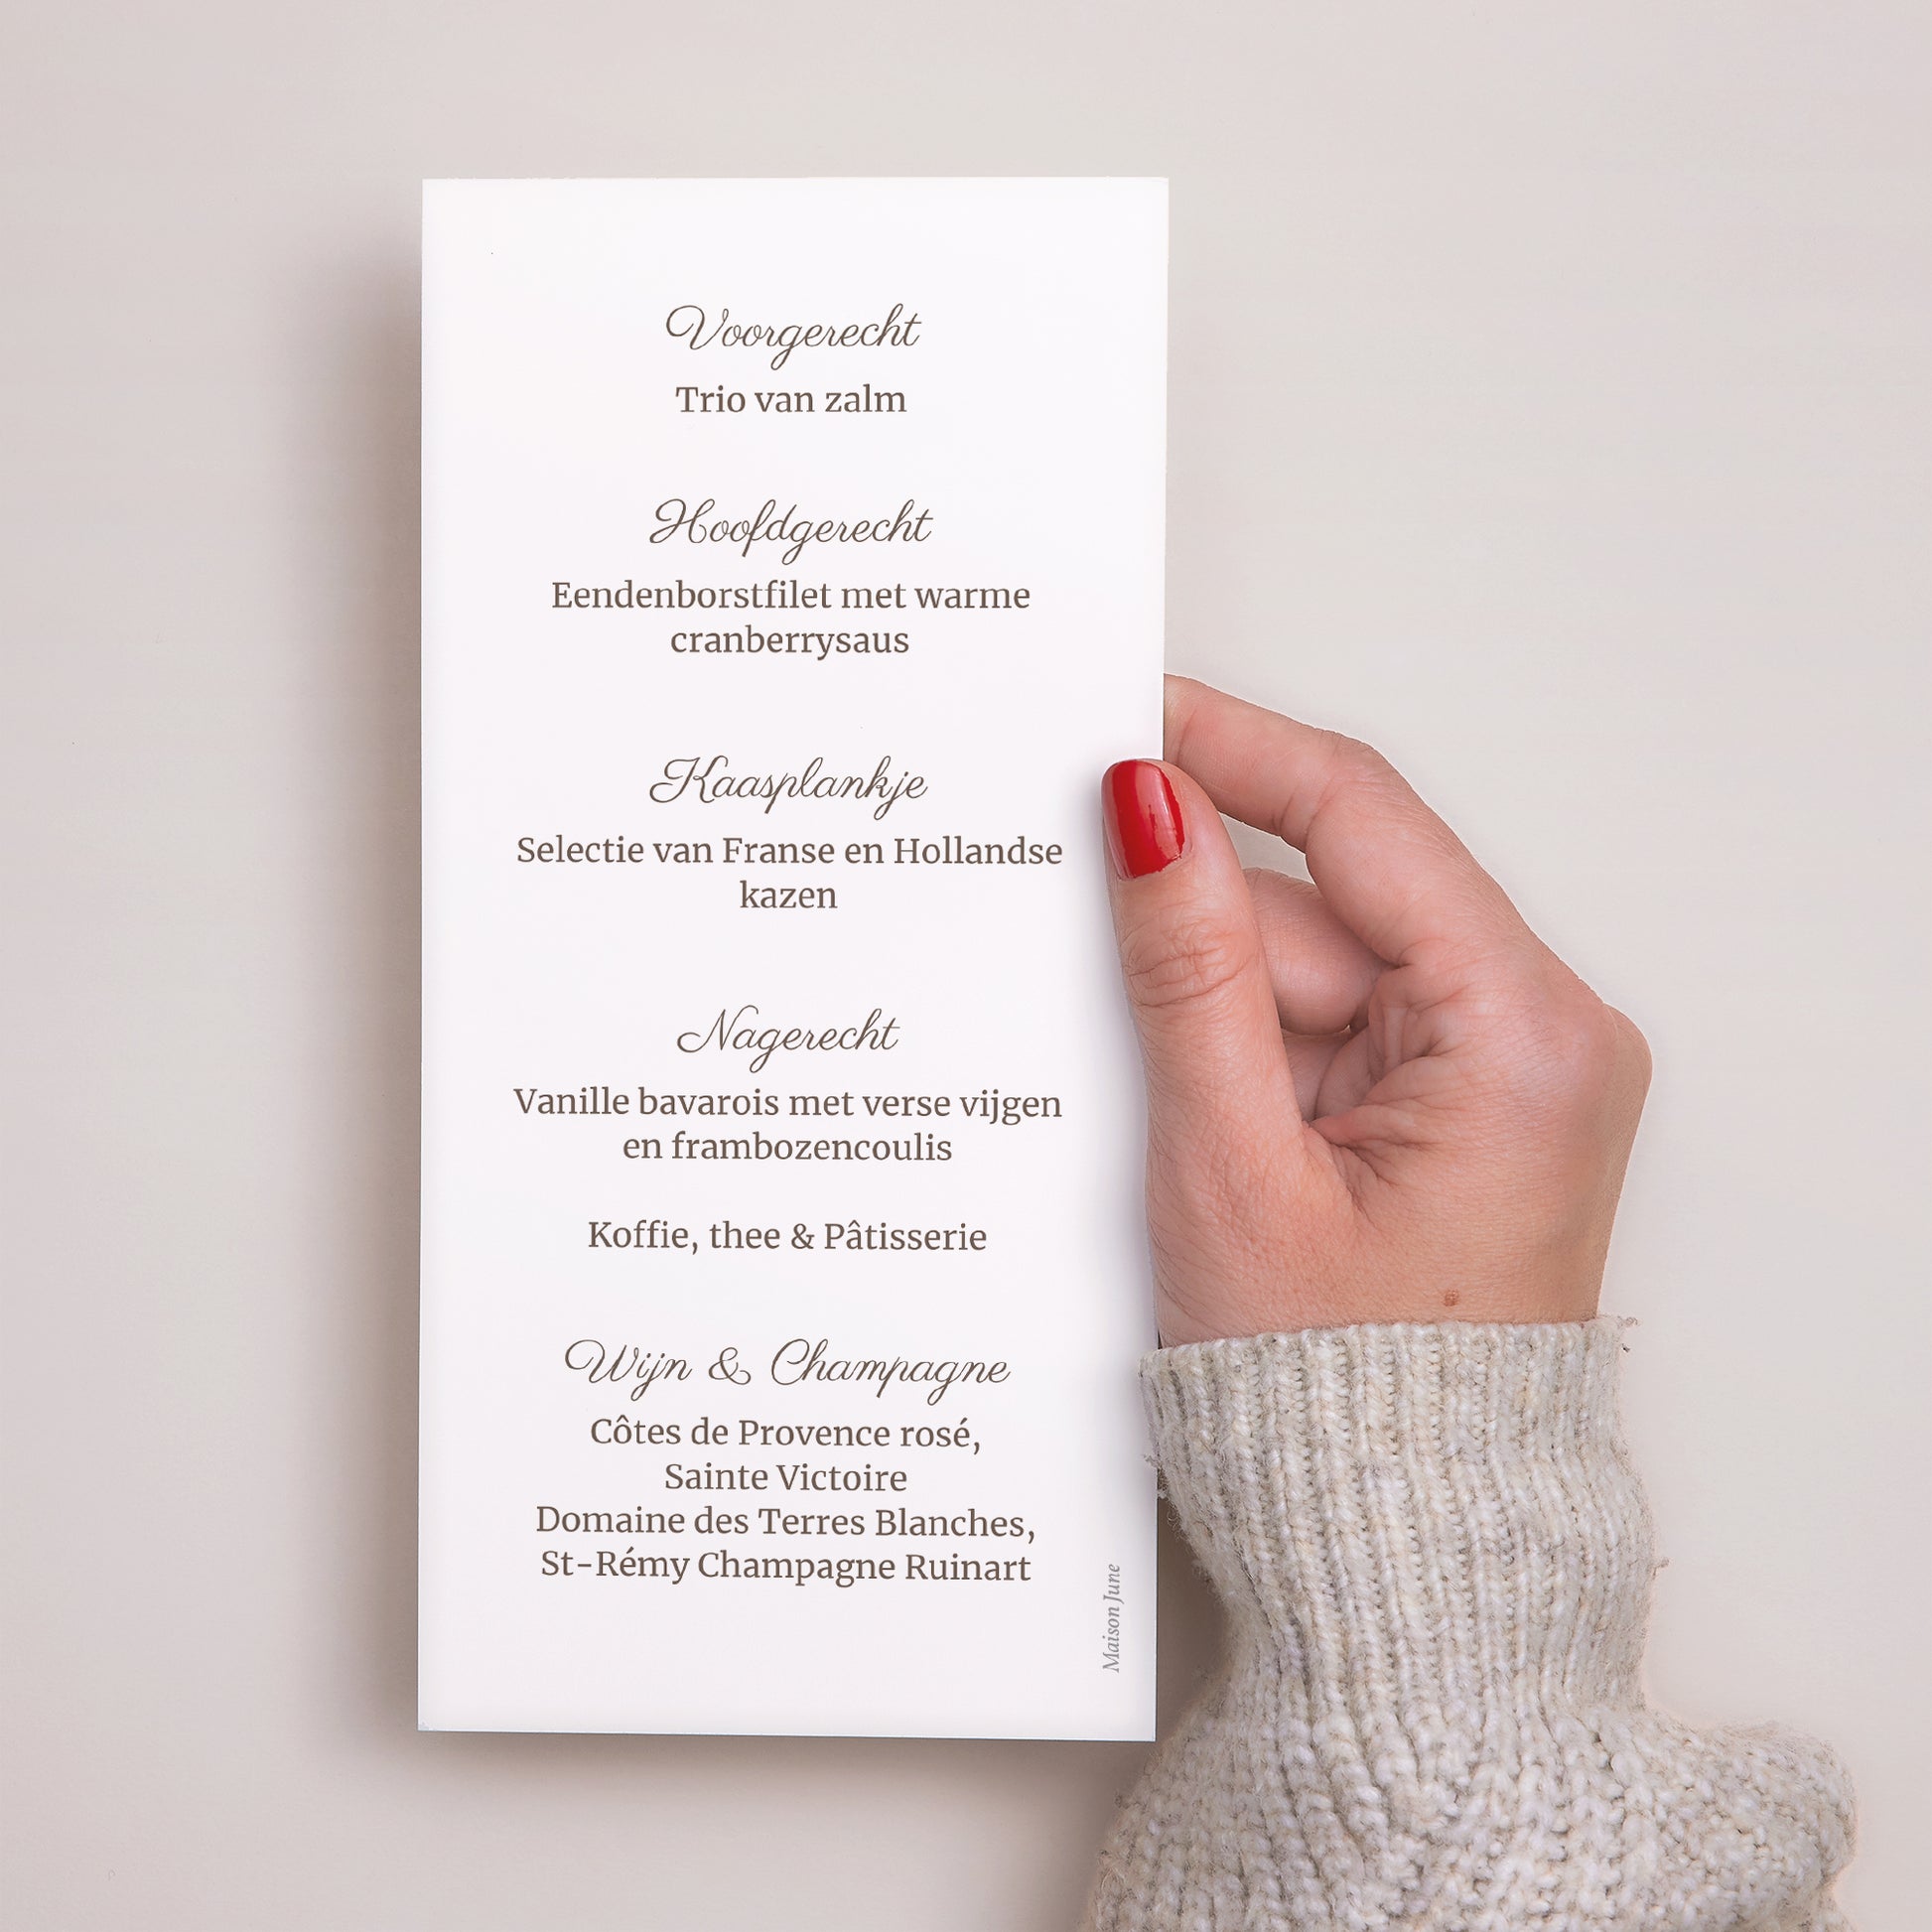 Voorgerecht
Trio van zalm
Hoofdgerecht
Eendenborstfilet met warme
cranberrysaus
Kaasplankje
Selectie van Franse en Hollandse
kazen
Nagerecht
Vanille bavarois met verse vijgen
en frambozencoulis
Koffie, thee & Pâtisserie
Wijn & Champagne
Côtes de Provence rosé,
Sainte Victoire
Domaine des Terres Blanches,
St-Rémy Champagne Ruinart
Maison June